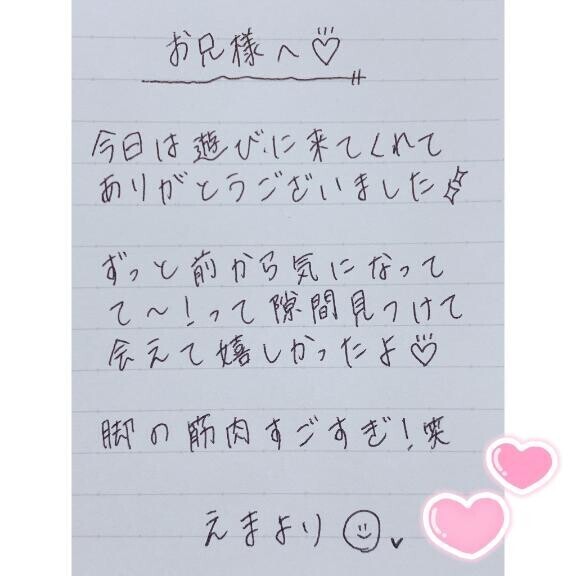 お兄様へ♡
今日は遊びに来てくれて
ありがとうございました
ずっと前から気になって
て〜!って隙間見つけて
会えて嬉しかったよ♡
脚の筋肉すごすぎ!笑
えまより